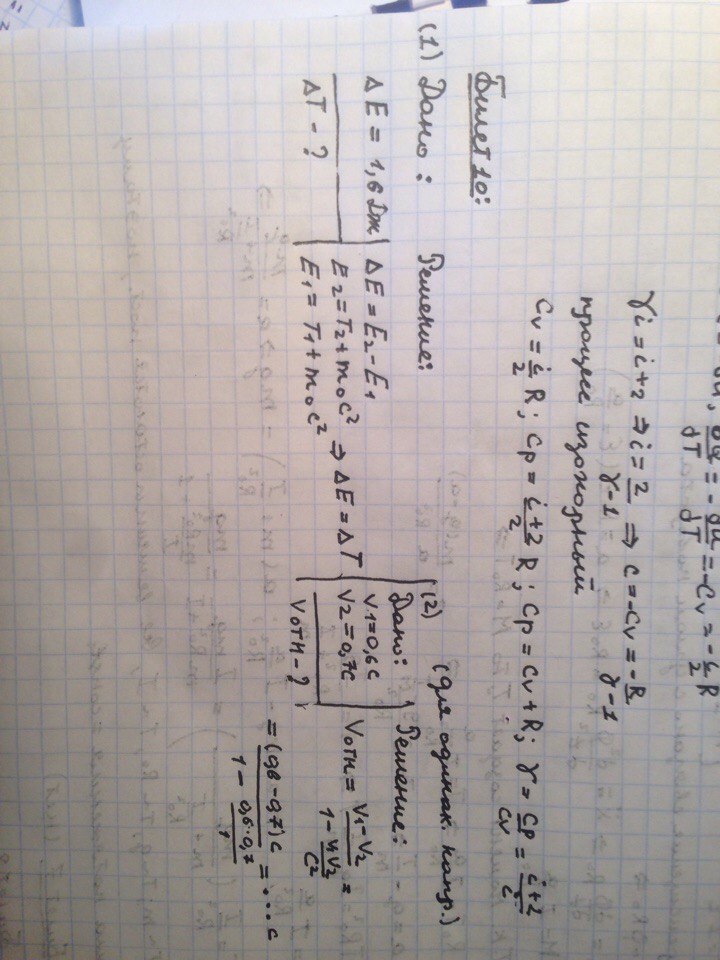 dT = - dT = -Cv = - i/2 R
γi = i+2 ⇒ i = 2/(γ-1) ⇒ C = -Cv = - R/(γ-1)
процесс изохорный
Cv = i/2 R ; Cp = (i+2)/2 R ; Cp = Cv + R ; γ = Cp/Cv = (i+2)/i
Билет 10:
(1) Дано:
ΔE = 1,6 Дж
ΔT - ?
Решение:
ΔE = E₂ - E₁
E₂ = T₂ + m₀c² ⇒ ΔE = ΔT
E₁ = T₁ + m₀c²
(2) (для одинак. напр.)
Дано:
V1 = 0,6c
V2 = 0,7c
Vотн - ?
Решение:
Vотн = (V₁ - V₂)/(1 - V₁V₂/c²) =
= (0,6 - 0,7)c/(1 - 0,6·0,7/1) = ...c